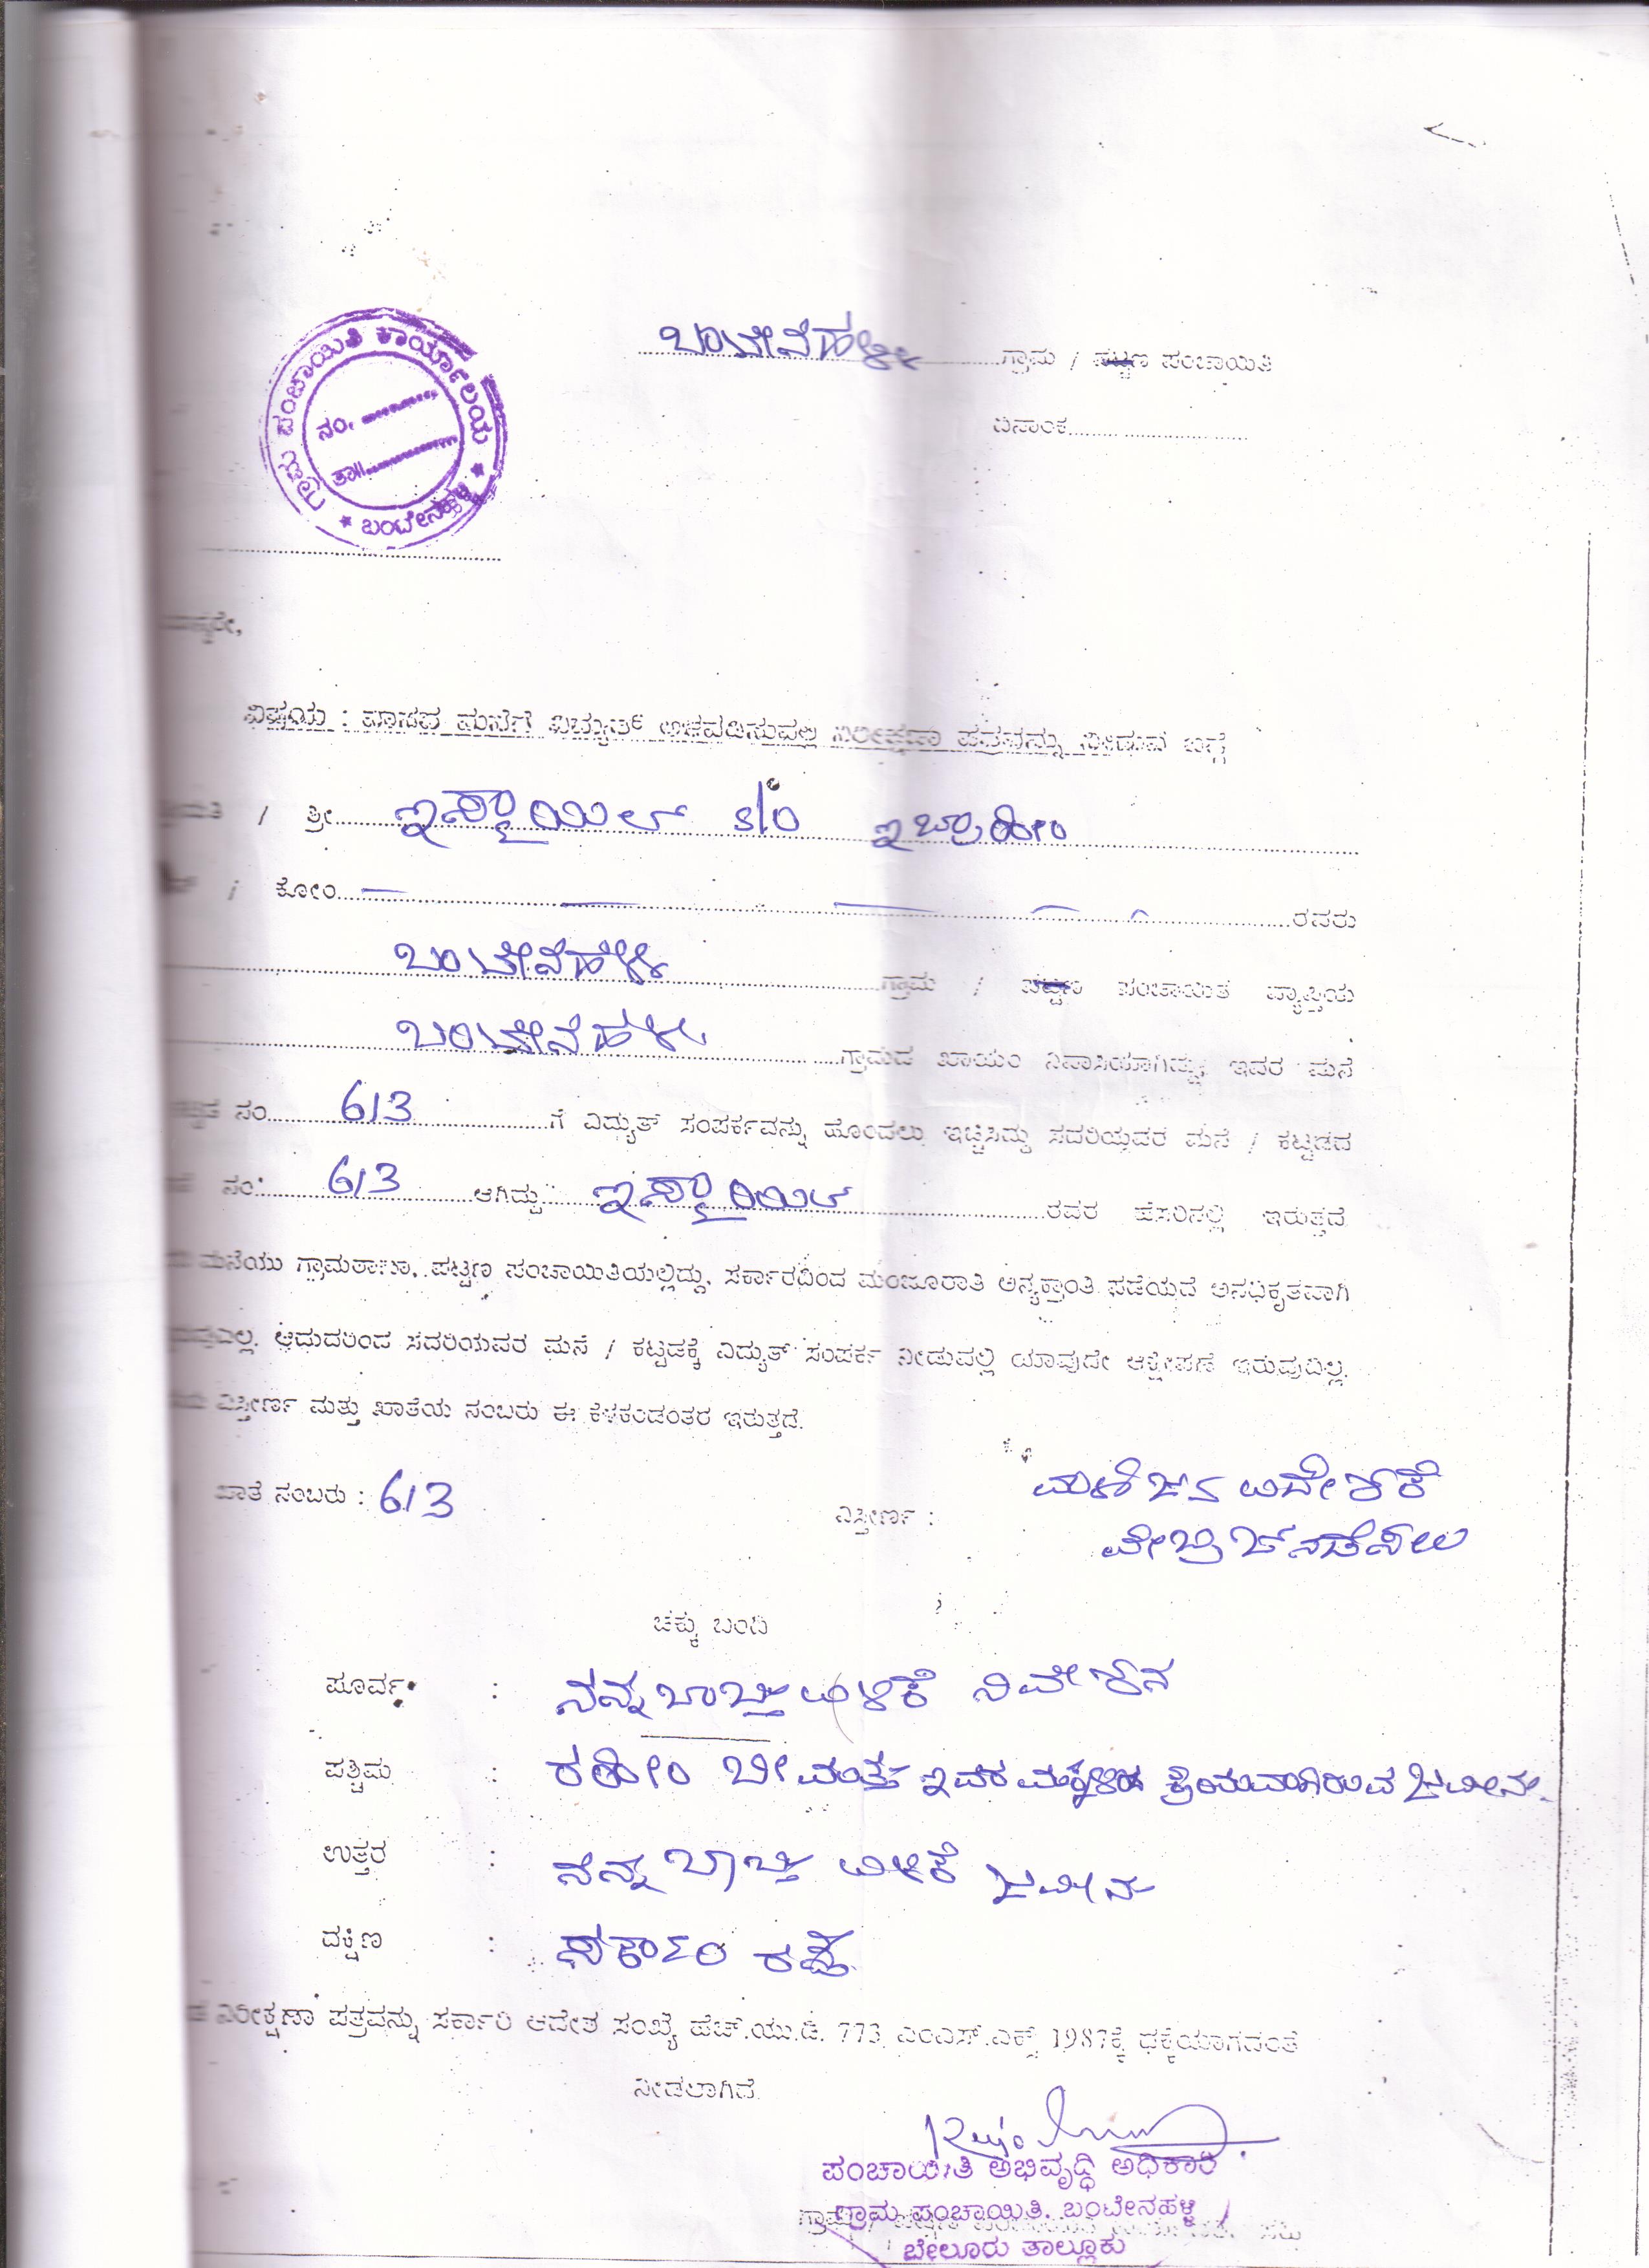 ಬಂಟೇನಹಳ್ಳಿ ಗ್ರಾಮ / ಪಟ್ಟಣ ಪಂಚಾಯಿತಿ
ಗ್ರಾಮ ಪಂಚಾಯಿತಿ ಕಾರ್ಯಾಲಯ
ನಂ.
ತಾ||
* ಬಂಟೇನಹಳ್ಳಿ *
ದಿನಾಂಕ
ವಿಷಯ : ವಾಸದ ಮನೆಗೆ ವಿದ್ಯುತ್ ಅಳವಡಿಸುವಲ್ಲಿ ನಿರೀಕ್ಷಣಾ ಪತ್ರವನ್ನು ನೀಡುವ ಬಗ್ಗೆ
/ ಶ್ರೀ ಇಸ್ಮಾಯಿಲ್ s/o ಇಬ್ರಾಹೀಂ
ಕೋಂ ರವರು
ಬಂಟೇನಹಳ್ಳಿ ಗ್ರಾಮ / ಪಟ್ಟಣ ಪಂಚಾಯಿತಿ ವ್ಯಾಪ್ತಿಯ
ಬಂಟೇನಹಳ್ಳಿ ಗ್ರಾಮದ ಖಾಯಂ ನಿವಾಸಿಯಾಗಿದ್ದು, ಇವರ ಮನೆ
ನಂ 613 ಗೆ ವಿದ್ಯುತ್ ಸಂಪರ್ಕವನ್ನು ಹೊಂದಲು ಇಚ್ಚಿಸಿದ್ದು ಸದರಿಯವರ ಮನೆ / ಕಟ್ಟಡದ
ನಂ 613 ಆಗಿದ್ದು ಇಸ್ಮಾಯಿಲ್ ರವರ ಹೆಸರಿನಲ್ಲಿ ಇರುತ್ತದೆ
ಮನೆಯು ಗ್ರಾಮಠಾಣಾ, ಪಟ್ಟಣ ಪಂಚಾಯಿತಿಯಲ್ಲಿದ್ದು, ಸರ್ಕಾರದಿಂದ ಮಂಜೂರಾತಿ ಅನ್ಯಕ್ರಾಂತಿ ಪಡೆಯದೆ ಅನಧಿಕೃತವಾಗಿ
ಆದುದರಿಂದ ಸದರಿಯವರ ಮನೆ / ಕಟ್ಟಡಕ್ಕೆ ವಿದ್ಯುತ್ ಸಂಪರ್ಕ ನೀಡುವಲ್ಲಿ ಯಾವುದೇ ಆಕ್ಷೇಪಣೆ ಇರುವುದಿಲ್ಲ.
ವಿಸ್ತೀರ್ಣ ಮತ್ತು ಖಾತೆಯ ನಂಬರು ಈ ಕೆಳಕಂಡಂತರ ಇರುತ್ತದೆ.
ಖಾತೆ ನಂಬರು : 613 ವಿಸ್ತೀರ್ಣ :
ಚಕ್ಕು ಬಂದಿ
ಪೂರ್ವ : ನನ್ನ ಬಾಬ್ತು ಉಳಿಕೆ ನಿವೇಶನ
ಪಶ್ಚಿಮ : ರಹೀಂ ಬೀ ಮತ್ತು ಇವರ ಮಕ್ಕಳಿಗೆ ಕ್ರಯವಾಗಿರುವ ಜಮೀನು.
ಉತ್ತರ : ನನ್ನ ಬಾಬ್ತು ಉಳಿಕೆ ಜಮೀನು
ದಕ್ಷಿಣ : ಸರ್ಕಾರಿ ರಸ್ತೆ
ನಿರೀಕ್ಷಣಾ ಪತ್ರವನ್ನು ಸರ್ಕಾರಿ ಆದೇಶ ಸಂಖ್ಯೆ ಹೆಚ್.ಯು.ಡಿ. 773 ಎಂಎಸ್.ಎಕ್ಸ್ 1987ಕ್ಕೆ ಧಕ್ಕೆಯಾಗದಂತೆ
ನೀಡಲಾಗಿದೆ.
ಪಂಚಾಯಿತಿ ಅಭಿವೃದ್ಧಿ ಅಧಿಕಾರಿ
ಗ್ರಾಮ ಪಂಚಾಯಿತಿ, ಬಂಟೇನಹಳ್ಳಿ
ಬೇಲೂರು ತಾಲ್ಲೂಕು